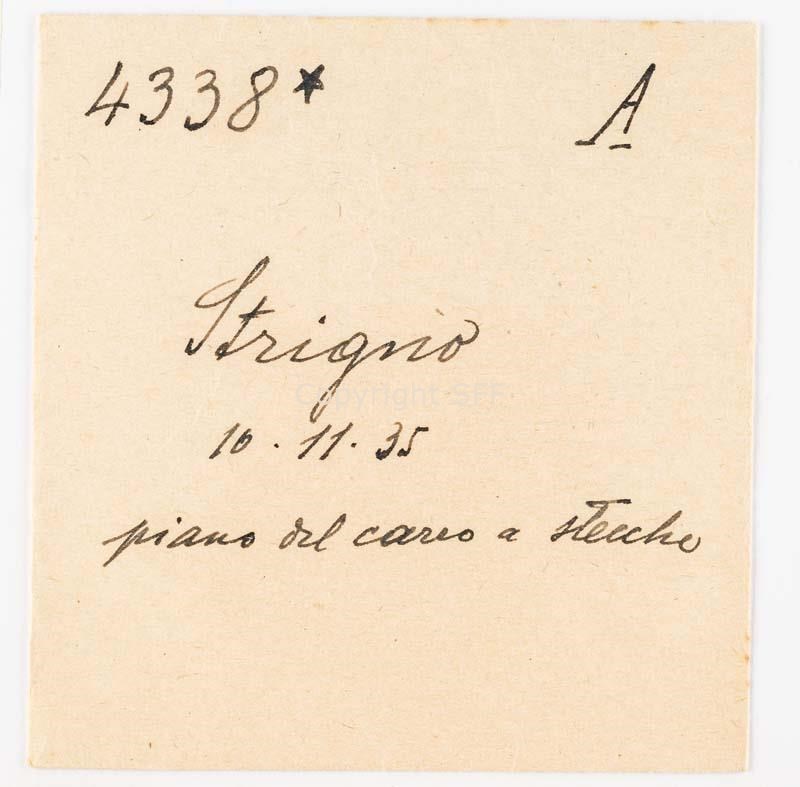 4338* A
Strigno
Copyright SFF
10.11.35
piano del carro a stecche